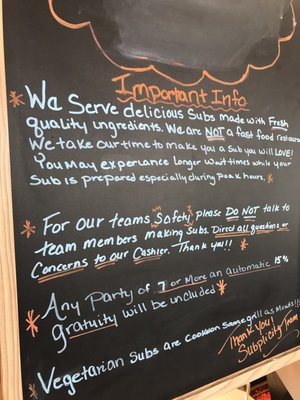 Important Info
* We Serve delicious Subs made with Fresh
quality ingredients. We are NOT a fast food restaur
We take our time to make you a Sub you will LOVE!
You may experiance longer wait times while your
Sub is prepared especially during peak hours. *
* For our teams Safety, please DO NOT talk to
team members making subs. Direct all questions or
Concerns to our Cashier. Thank you!! *
* Any Party of 7 or More an automatic 15%
gratuity will be included *
* Vegetarian Subs are Cook on Same grill as Meats!!
Thank you!
Subplicity Team